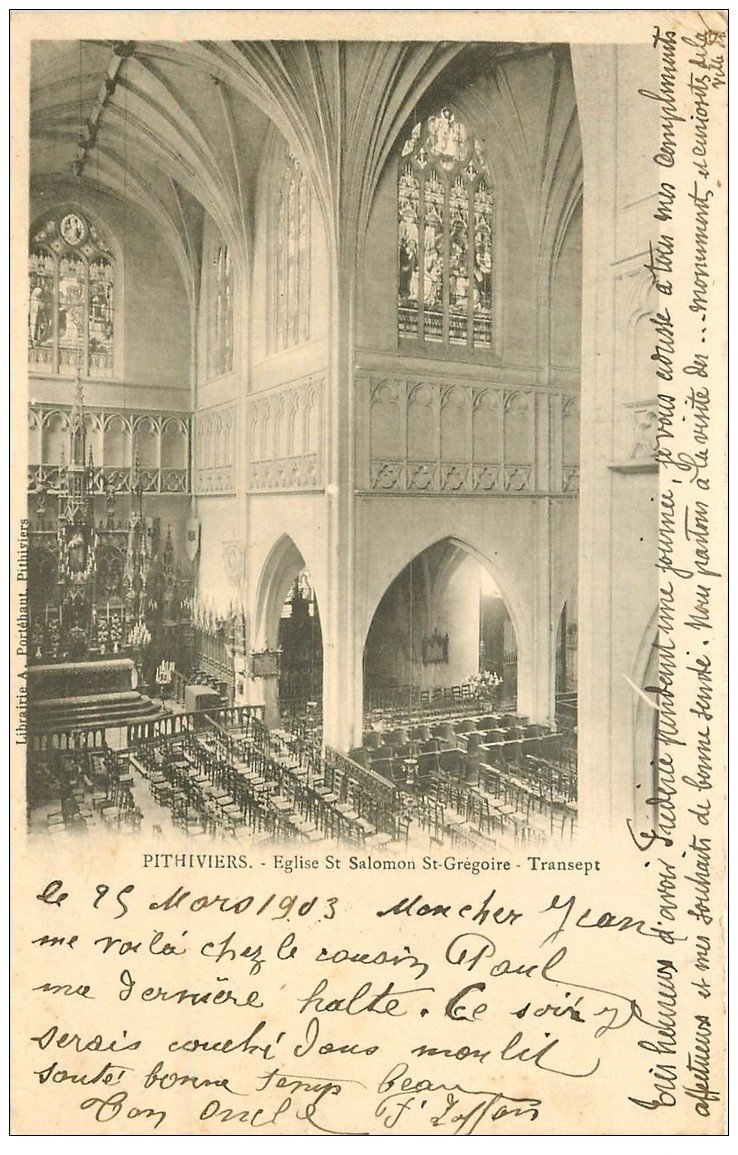 Librairie A. Portéhaut, Pithiviers
PITHIVIERS. - Eglise St Salomon St-Grégoire - Transept
le 25 Mars 1903 Mon cher Jean
me voilà chez le cousin Paul
ma dernière halte. Ce soir je
serais couché dans mon lit
santé bonne temps beau
Ton oncle
Très heureux d'avoir Frédéric pendant une journée, je vais ajouter à tous mes compliments
affectueux et mes souhaits de bonne santé. Nous partons à la visite des ... monuments et curiosités de la
ville